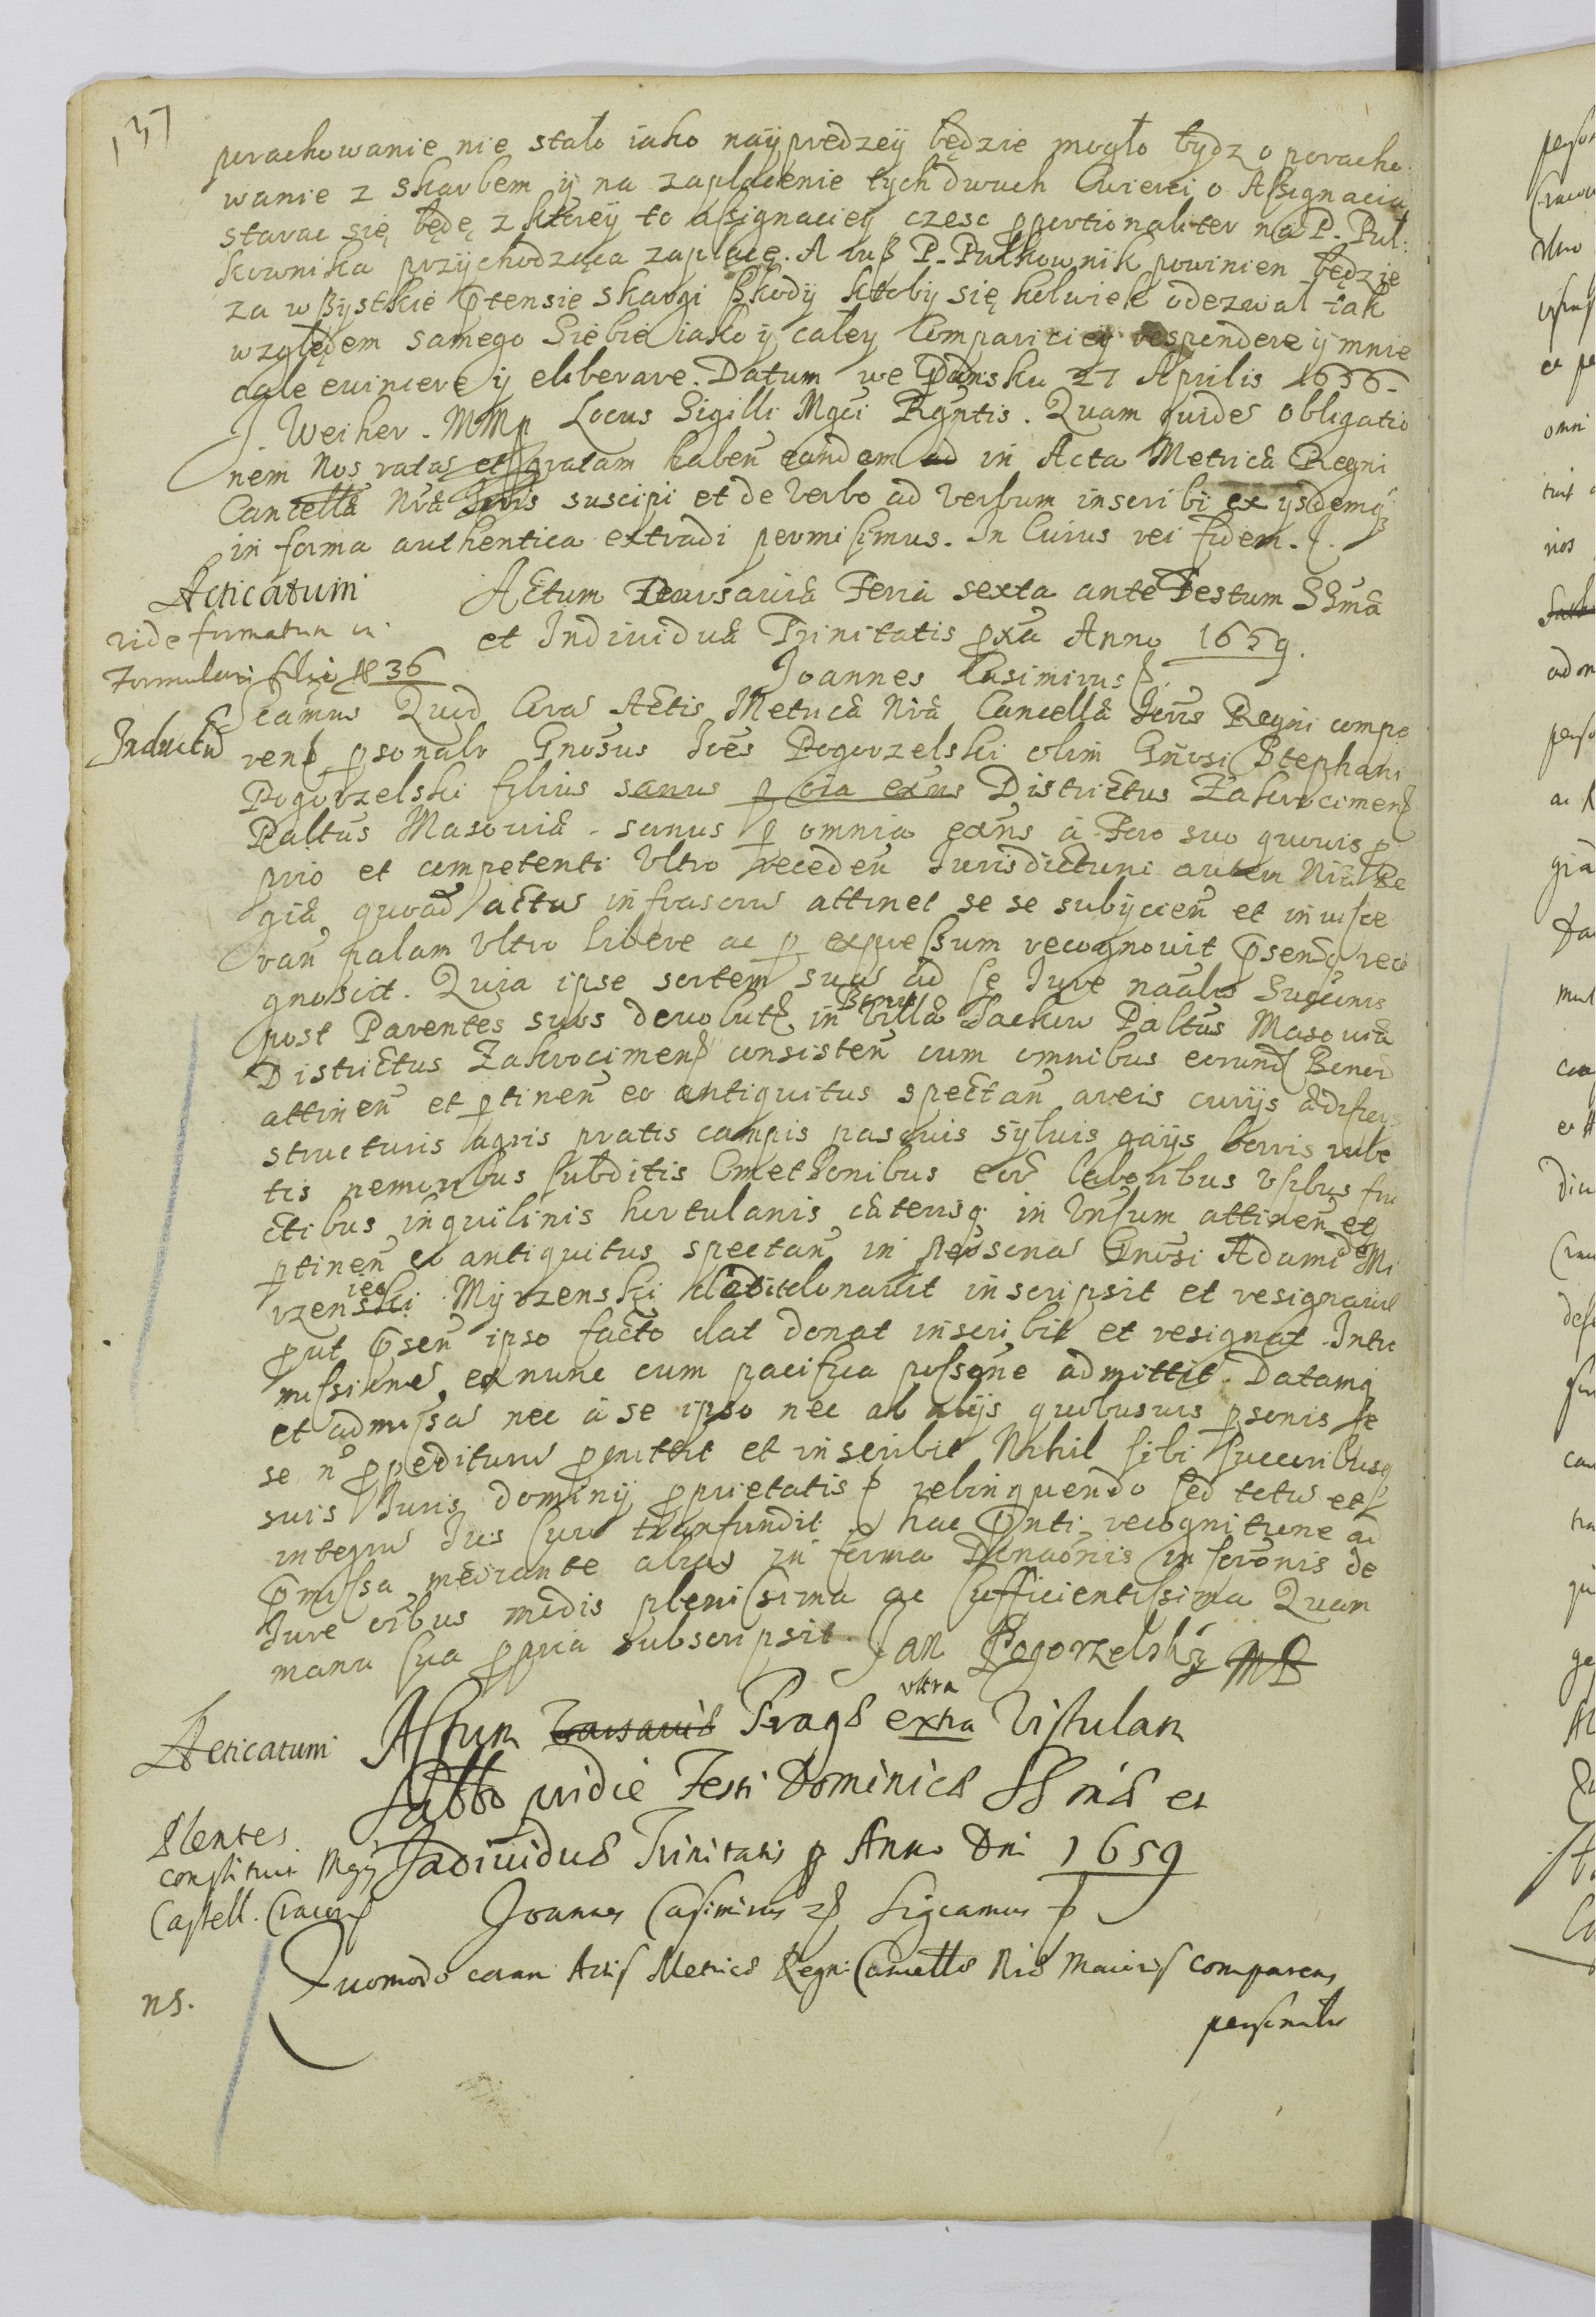 137
porachowanie nie stało iako naypredzey będzie mogło bydz o poracho
wanie z skarbem y na zapłacenie tych dwuch Cwierci o Assignacią
starac się będę z ktorey to assignaciey czesc pportionaliter na P. Puł:
kownika przychodząca zapłacę. A tuß P. Pułkownik powinien będzie
za wßystkie ptensie skargi ßkody ktoby się kolwiek odezwał tak
względem samego Siebie iako y całey Compariciey respondere y mnie
cale evincere y eliberare. Datum we Gdansku 27 Aprilis 1656.
J. Weiher. MMp Locus Sigilli Mgci Rgntis. Quam quidē obligatio
nem Nos ratā et gratam haben eandem ad in Acta Metricæ Regni
Cancellæ Nræ Joris suscipi et de verbo ad verbum inscribi ex ysdemq
in forma authentica extradi permisimus. In Cuius rei fidem.
Acticatum
Actum Varsaviæ Feria sexta ante Festum SSmæ
vide formatum in
et Individuæ Trinitatis pxa Anno 1659.
Formulari folio 36
Joannes Casimirus
Inductū
Sigcamus Quod Corā Actis Metricæ Nræ Cancellæ Joris Regni compa
rens psonalr Gnosus Joēs Pogorzelski olim Gnosi Stephani
Pogorzelski filius sanus p oia exns Districtus Zakrocimens
Paltus Masoviæ. sanus p omnia exns a Foro suo quovis p
prio et competenti Ultro recedeñ Jurisdictioni autem Næ Re
giæ quoad actū infrascrm attinet se se subycieñ et invisce
rañ palam Ultro libere ac p expressum recognovit psentq reco
gnoscit. Quia ipse sortem suā ad se Jure naali Successionis
post Parentes suos devolutā in Bonis Villa Packiew Paltus Masoviæ
Districtus Zakrocimens consisteñ cum omnibus eorund Bonor
attineñ et ptineñ eo antiquitus spectañ areis curiys ædificys
structuris agris pratis campis pascuis sylvis gays borris rube
tis nemoribus subditis Cmethonibus eor laboribus usibus fru
ctibus inquilinis hortulanis cæterisq in Unsum attineñ et
ptineñ eo antiquitus spectañ in psona Gnosi Adami de Mi
rzeniec Myrzenski dedit donavit inscripsit et resignavit
put pseñ ipso facto dat donat inscribit et resignat. Intro
missionē ex nunc cum pacifica possone admittit. Datamq
et admissā nec a se ipso nec ab alys quibusvis psonis se
se n ppediturū pmittit et inscribit Nihil sibi successoribusq
suis Juris dominy pprietatis relinquendo sed totū et
integrū Jus suū transfundit hac pnti recognitione ad
pmissa mediante alias in forma Donaonis inscronis de
Jure oibus modis plenissima ac sufficientissima Quam
manu sua ppria subscripsit. Jan Pogorzelsky MP
Acticatum
Actum Varsaviæ Pragæ extra ultra Vistulam
Sabbo pridie Festi Dominicæ SSmæ et
Plentes
constituit Mgcy
Individuæ Trinitatis p Anno Dni 1659
Castell. Cracoviens
Joannes Casimirus Sigcamus
Quomodo coram Actis Metricæ Regni Cancellæ Næ Maioris comparens
ns.
personaliter